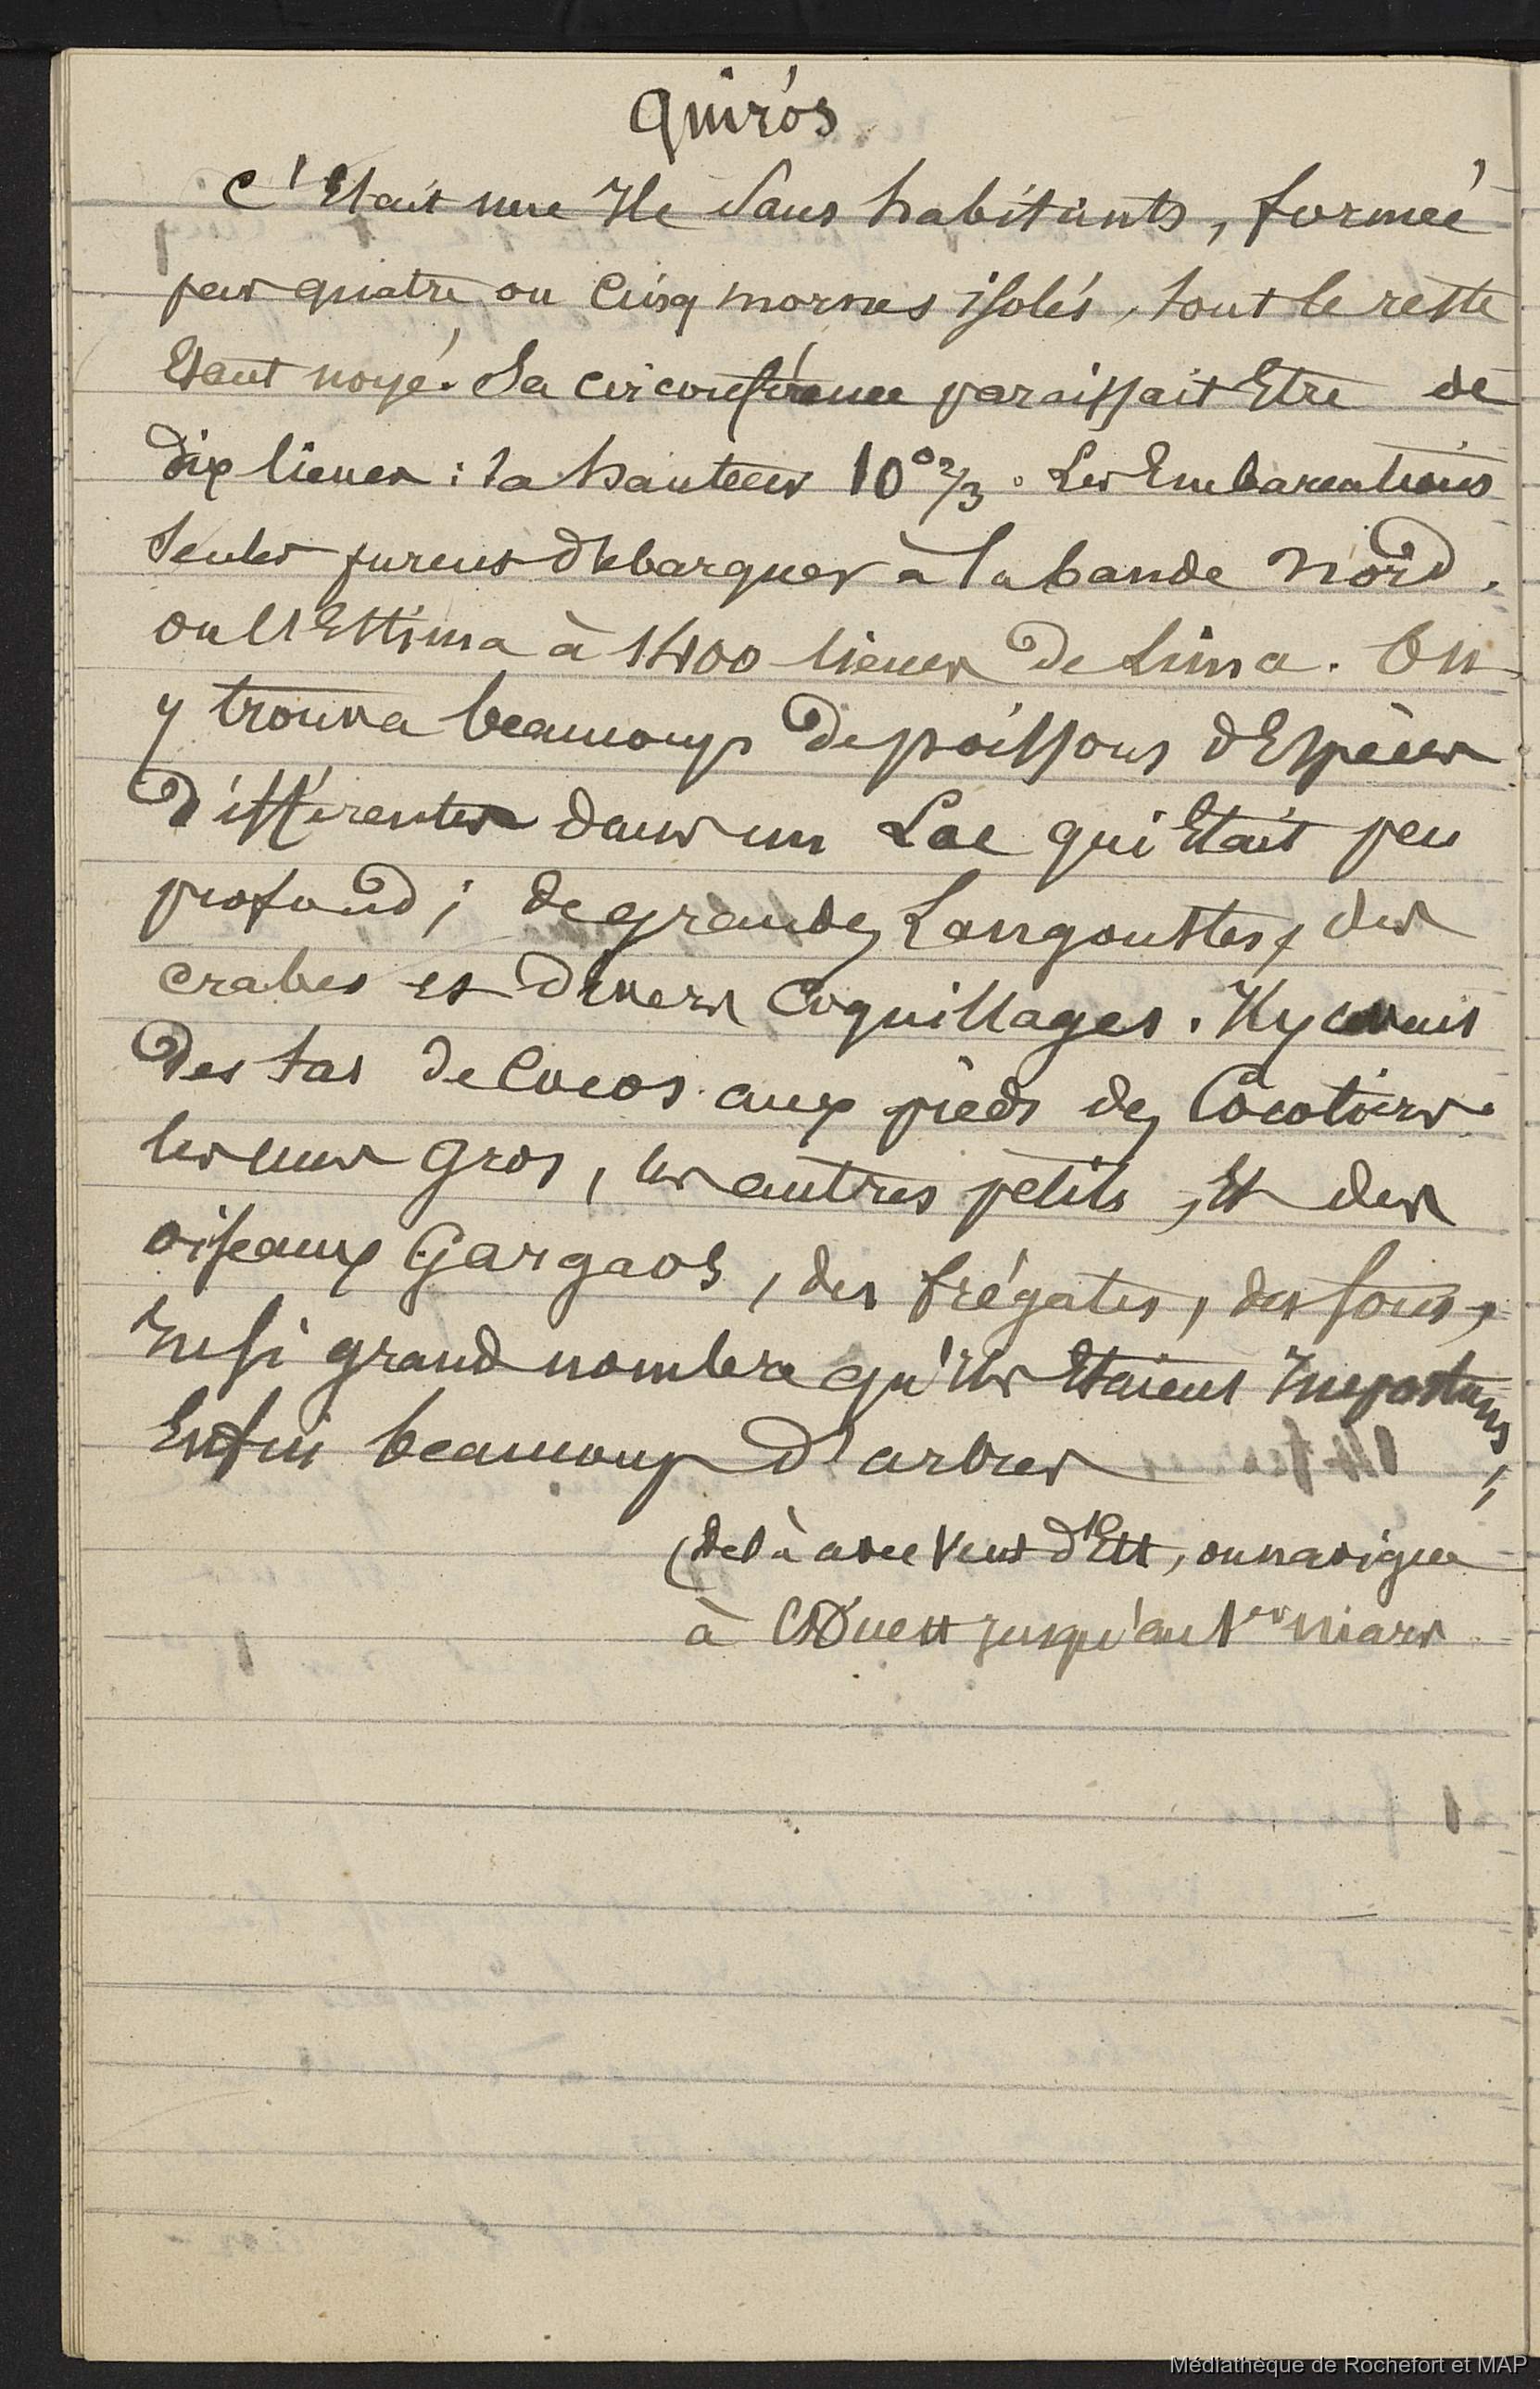 Quirós
C'Etait une Ile sans habitants, formée
par quatre ou cinq mornes isolés, tout le reste
Etant noyé. Sa circonférence paraissait Etre de
dix lieues : la hauteur 10° 2/3. Les Embarcations
seules furent débarquer à la bande nord.
on l'Estima à 1400 lieues de Lima. On
y trouva beaucoup de poissons d'Espèces
différentes dans un Lac qui Etait peu
profond ; de grandes Langoustes, des
crabes et divers Coquillages. Il y avait
des tas de Cocos aux pieds des Cocotiers
les uns gros, les autres petits, Et des
oiseaux Gargaos, des frégates, des fous,
En si grand nombre qu'ils Etaient Importuns,
Enfin beaucoup d'arbres
(de là avec Vent d'Est, on navigua
à l'Ouest jusqu'au 1er mars
Médiathèque de Rochefort et MAP